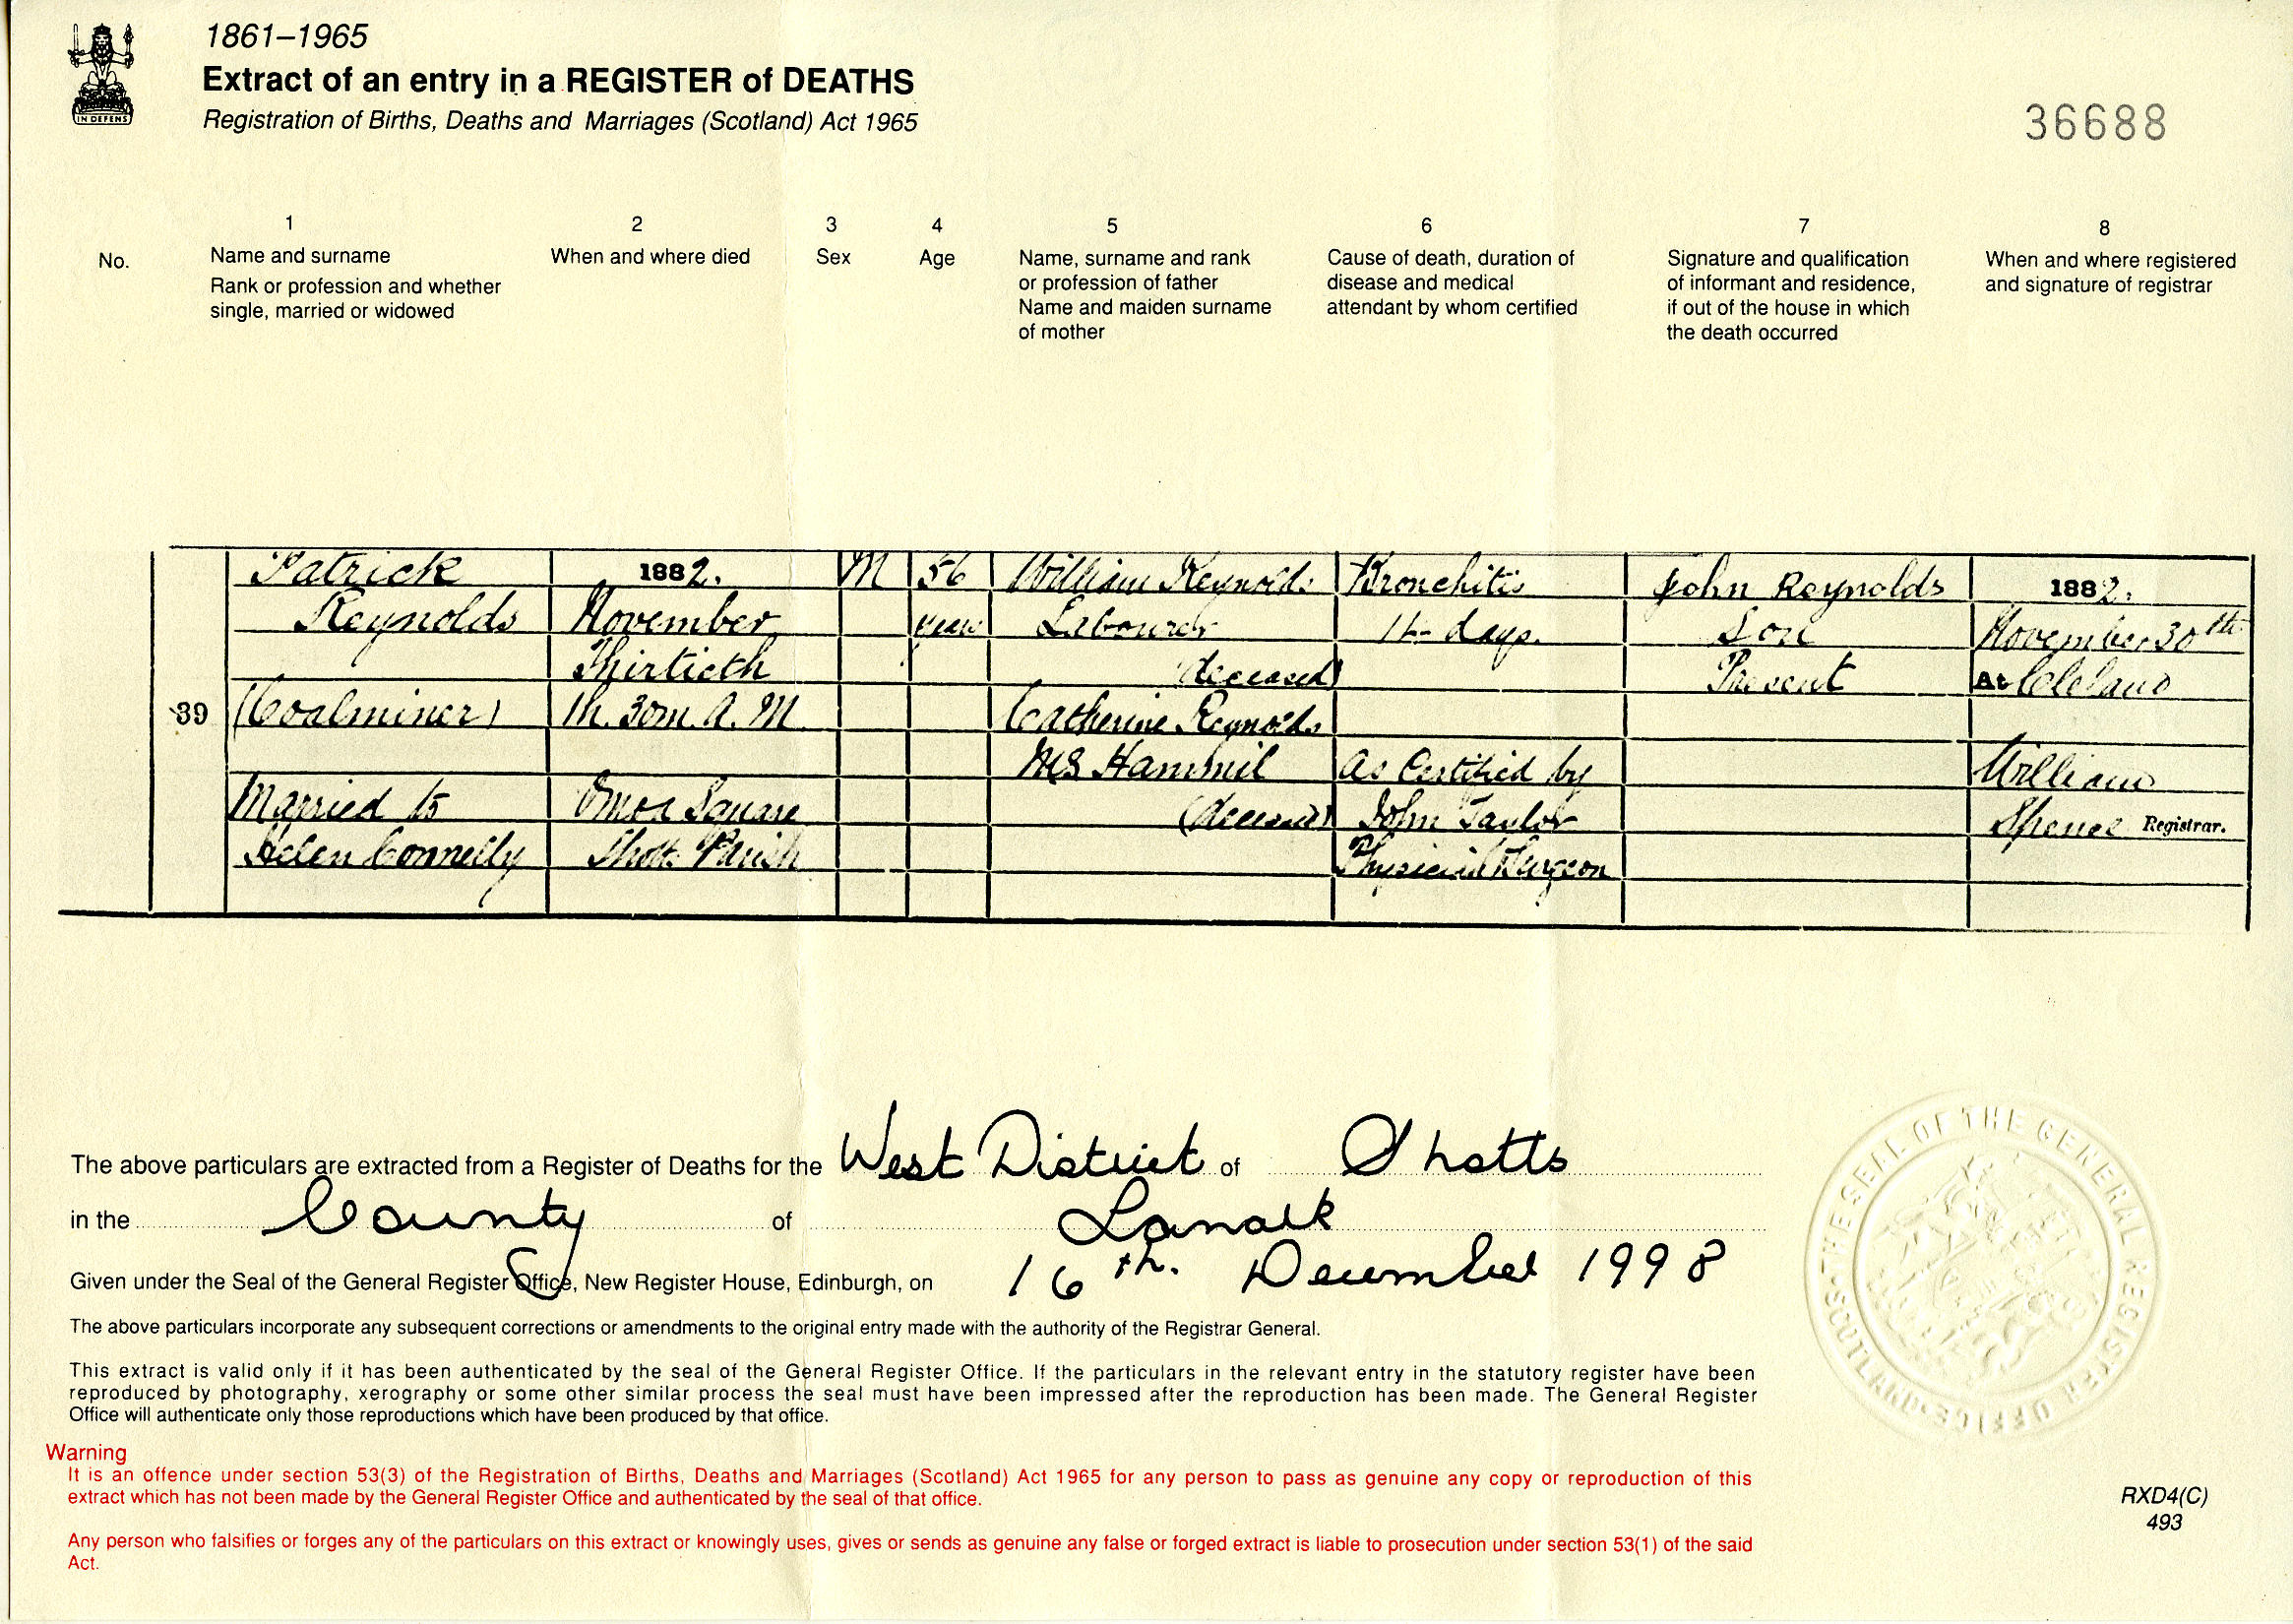 1861–1965
Extract of an entry in a REGISTER of DEATHS
Registration of Births, Deaths and Marriages (Scotland) Act 1965
IN DEFENS
36688
No.
1
Name and surname
Rank or profession and whether
single, married or widowed
2
When and where died
3
Sex
4
Age
5
Name, surname and rank
or profession of father
Name and maiden surname
of mother
6
Cause of death, duration of
disease and medical
attendant by whom certified
7
Signature and qualification
of informant and residence,
if out of the house in which
the death occurred
8
When and where registered
and signature of registrar
39
Patrick
Reynolds
(Coalminer)
Married to
Helen Connelly
1882.
November
Thirtieth
1h. 30m. A. M.
Omoa Square
Shotts Parish
M
56
years
William Reynolds
Labourer
(deceased)
Catherine Reynolds
MS Hammil
(deceased)
Bronchitis
14 days.
As Certified by
John Taylor
Physician & Surgeon
John Reynolds
Son
Present
1882.
November 30th
At Cleland
William
Spence Registrar.
The above particulars are extracted from a Register of Deaths for the West District of Shotts
in the County of Lanark
Given under the Seal of the General Register Office, New Register House, Edinburgh, on 16th. December 1998
The above particulars incorporate any subsequent corrections or amendments to the original entry made with the authority of the Registrar General.
This extract is valid only if it has been authenticated by the seal of the General Register Office. If the particulars in the relevant entry in the statutory register have been
reproduced by photography, xerography or some other similar process the seal must have been impressed after the reproduction has been made. The General Register
Office will authenticate only those reproductions which have been produced by that office.
THE SEAL OF THE GENERAL REGISTER OFFICE SCOTLAND
Warning
It is an offence under section 53(3) of the Registration of Births, Deaths and Marriages (Scotland) Act 1965 for any person to pass as genuine any copy or reproduction of this
extract which has not been made by the General Register Office and authenticated by the seal of that office.
Any person who falsifies or forges any of the particulars on this extract or knowingly uses, gives or sends as genuine any false or forged extract is liable to prosecution under section 53(1) of the said
Act.
RXD4(C)
493